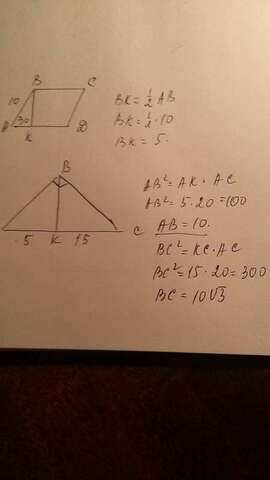 B C
10
30
A K D
BK = 1/2 AB
BK = 1/2 · 10
BK = 5.
B
5 K 15 C
AB² = AK · AC
AB² = 5 · 20 = 100
AB = 10.
BC² = KC · AC
BC² = 15 · 20 = 300
BC = 10√3